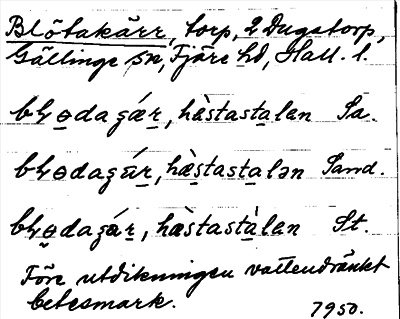 Blötakärr, torp, 2 Dugstorp,
Gällinge sn, Fjäre hd, Hall. l.
bɫɵdagǽr, hæ̀stastalen Sa.
bɫɵdagär, hæ̀stastalən Sand.
bɫɵdagár, hæ̀stastàlen St.
Före utdikningen vattendränkt
betesmark.
7950.